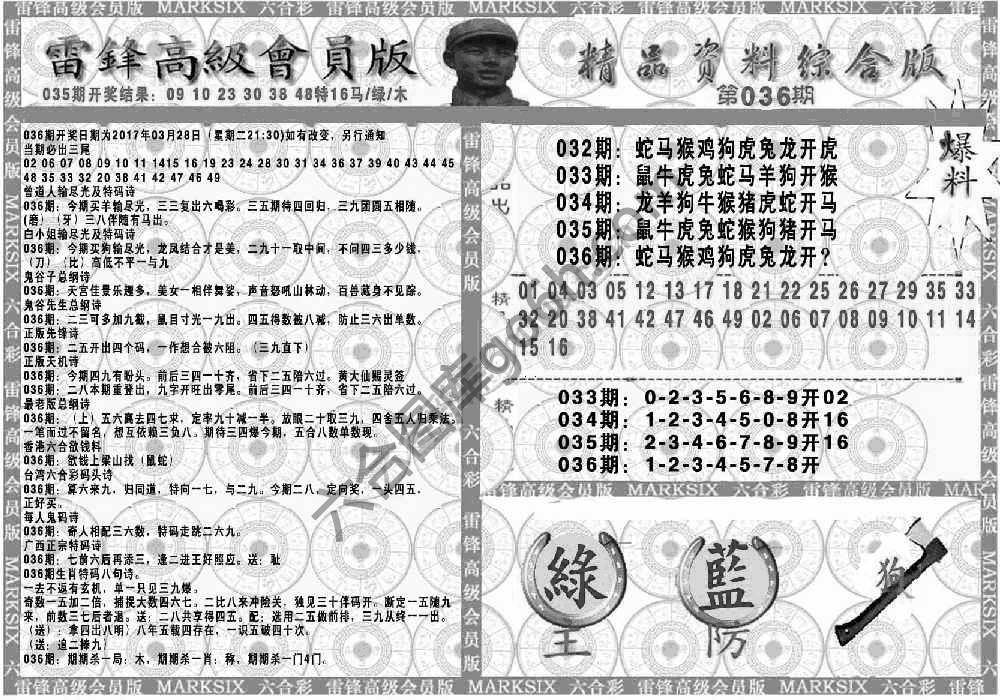 雷锋高级会员版 MARKSIX 六合彩 雷锋高级会员版 MARKSIX 六合彩 雷锋高级会员版 MARKSIX 六合彩 雷锋高级
雷鋒高級會員版
精品资料综合版
035期开奖结果：09 10 23 30 38 48特16马/绿/木
第036期
036期开奖日期为2017年03月28日（星期二21:30)如有改变，另行通知
当期必出三尾
02 06 07 08 09 10 11 1415 16 19 23 24 28 30 31 34 36 37 39 40 43 44 45
48 35 33 32 20 38 41 42 47 46 49
曾道人输尽光及特码诗
036期：今期买羊输尽光，三三复出六喝彩。三五期待四回归，三九团圆五相随。
(磨）（牙）三八伴随有马出。
白小姐输尽光及特码诗
036期：今期买狗输尽光，龙凤结合才是美，二九十一取中间，不问四三多少钱，
（刀）（比）高低不平一与九
鬼谷子总纲诗
036期：天宫佳景乐趣多，美女一相伴舞娑，声音怒吼山林动，百兽藏身不见踪。
鬼谷先生总纲诗
036期：二三可多加九截，鼠目寸光一九出。四五得数被八减，防止三六出单数。
正版先锋诗
036期：二五开出四个码，一作想合被六阻。（三九直下）
正版天机诗
036期：今期四九有盼头。前后三四一十齐，省下二五陪六过。黄大仙赐灵签
036期：二八本期重登出，九字开旺出零尾。前后三四一十齐，省下二五陪六过。
最老版总纲诗
036期：（上）五六离去四七来，定率九十减一半。放眼二十取三九，四舍五人归乘法。
一笔而过不留名，想互依赖三负八。期待三四爆今期，五合八数单数现。
香港六合欲钱料
036期：欲钱上梁山找（鼠蛇）
台湾六合彩码头诗
036期：算六来九，归同道，特向一七，与二九。今期二八，定向奖，一头四五，
正好买。
每人鬼码诗
036期：奇人相配三六数，特码走跳二六九。
广西正宗特码诗
036期：七前六后再添三，逢二进王好照应。送：耻
036期生肖特码八句诗。
一去不返有玄机，单一只见三九爆。
奇数一五加二倍，捕捉大数四六七。二比八来冲险关，独见三十伴码开。断定一五随九
来，前数三七后者退。送：二八共享得四五。配：选用二五做前排，三九从终一一出。
（送）：拿四出八明）八年五载四存在，一识五破四十次。
（送：追二捧九）
036期：期期杀一局：木，期期杀一肖：称，期期杀一门4门。
爆料
032期：蛇马猴鸡狗虎兔龙开虎
033期：鼠牛虎兔蛇马羊狗开猴
034期：龙羊狗牛猴猪虎蛇开马
035期：鼠牛虎兔蛇猴狗猪开马
036期：蛇马猴鸡狗虎兔龙开？
01 04 03 05 12 13 17 18 21 22 25 26 27 29 35 33
32 20 38 41 42 47 46 49 02 06 07 08 09 10 11 14
15 16
精
精
033期：0-2-3-5-6-8-9开02
034期：1-2-3-4-5-0-8开16
035期：2-3-4-6-7-8-9开16
036期：1-2-3-4-5-7-8开
雷锋高级会员版 MARKSIX 六合彩 雷锋高级会员版
綠 藍 狗
王 防
雷锋高级会员版 MARKSIX 六合彩 雷锋高级会员版 MARKSIX 六合彩 雷锋高级会员版 MARKSIX 六合彩 雷锋高级